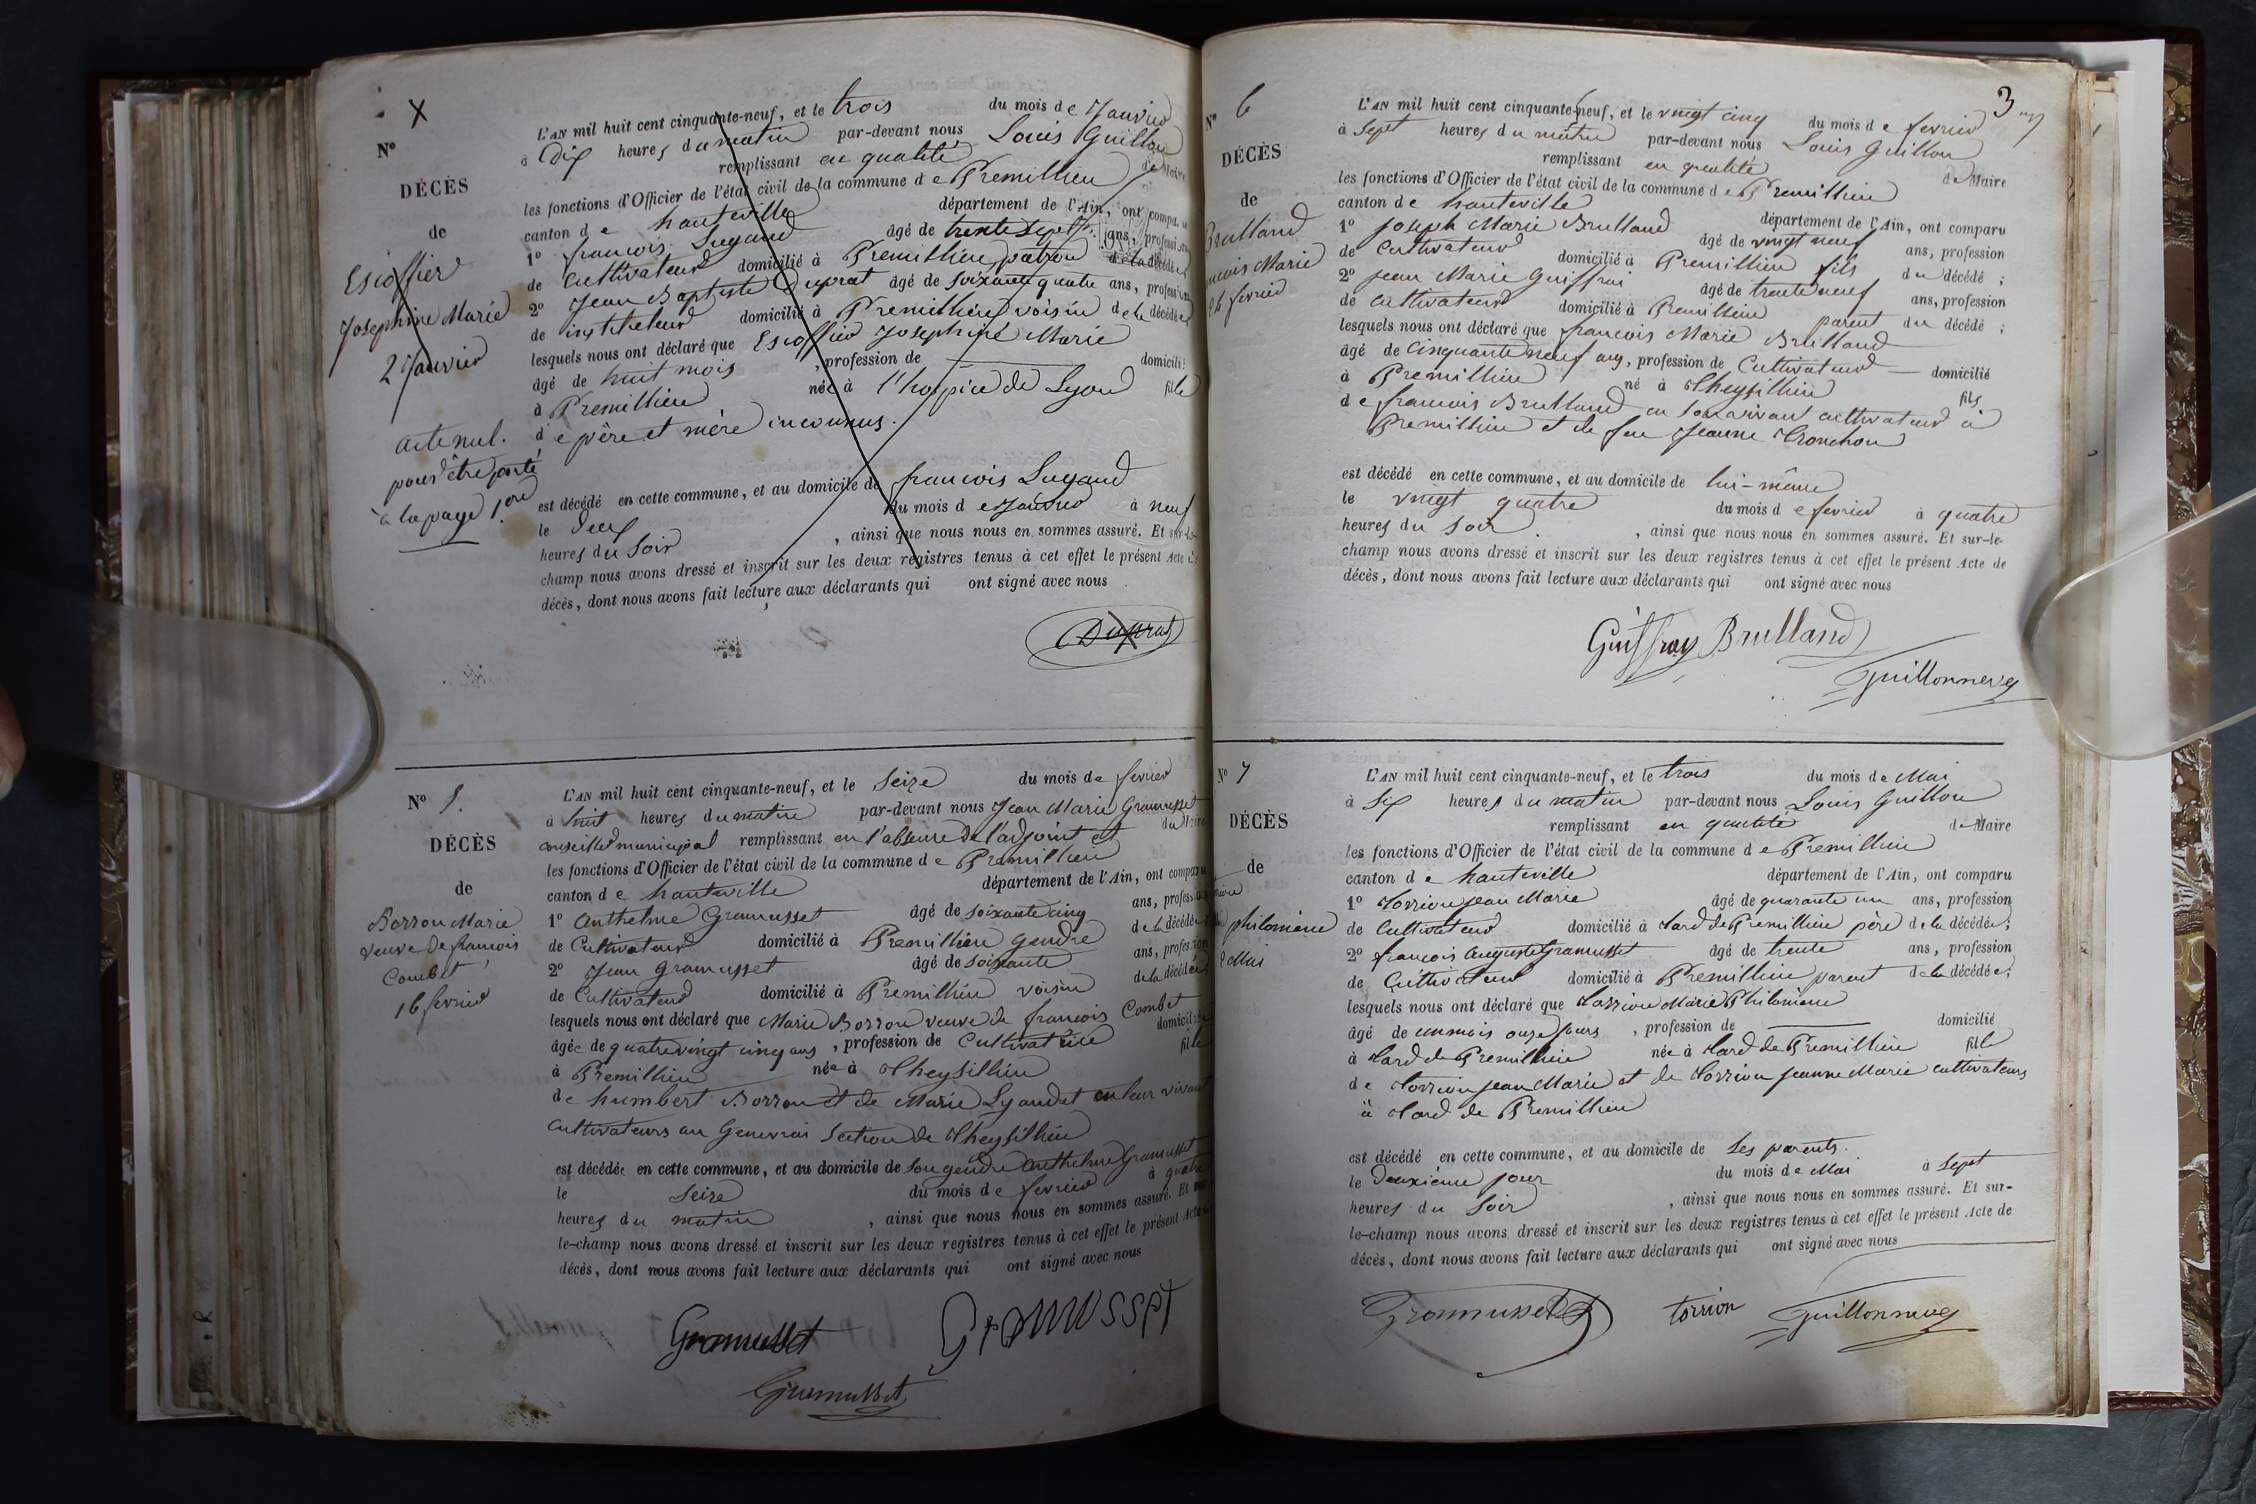 X
N°
DÉCÈS
de
Escoffier
Josephine Marie
2 Janvier
acte nul.
pour être porté
à la page 1ere
L'AN mil huit cent cinquante-neuf, et le trois du mois de Janvier
à Dix heures du matin par-devant nous Louis Guillon
remplissant en qualité de Maire
les fonctions d'Officier de l'état civil de la commune de Premillieu
canton de hauteville département de l'Ain, ont comparu
1° francois Lugand âgé de trente sept ans, profession
de Cultivateur domicilié à Premillieu patron de la décédée
2° Jean Baptiste Duprat âgé de soixante quatre ans, profession
de instituteur domicilié à Premillieu voisin de la décédée
lesquels nous ont déclaré que Escoffier Josephine Marie
âgé de huit mois , profession de domicilié
à Premillieu née à l'hospice de Lyon fille
de père et mère inconnus.
est décédé en cette commune, et au domicile de francois Lugand
le deux du mois de Janvier à neuf
heures du soir , ainsi que nous nous en sommes assuré. Et sur-le-
champ nous avons dressé et inscrit sur les deux registres tenus à cet effet le présent Acte de
décès, dont nous avons fait lecture aux déclarants qui ont signé avec nous
Duprat
N° 5.
DÉCÈS
de
Borron Marie
veuve de francois
Combet
16 fevrier
L'AN mil huit cent cinquante-neuf, et le Seize du mois de fevrier
à huit heures du matin par-devant nous Jean Marie Gramusset
conseiller municipal remplissant en l'absence de l'adjoint et du Maire
les fonctions d'Officier de l'état civil de la commune de Premillieu
canton de hauteville département de l'Ain, ont comparu
1° Anthelme Gramusset âgé de soixante cinq ans, profession
de Cultivateur domicilié à Premillieu gendre de la décédée
2° Jean Gramusset âgé de soixante ans, profession
de Cultivateur domicilié à Premillieu voisin de la décédée
lesquels nous ont déclaré que Marie Borron veuve de francois Combet
âgée de quatre vingt cinq ans , profession de Cultivatrice domiciliée
à Premillieu née à Cheysillieu fille
de humbert Borron et de Marie Lyaudet en leur vivant
cultivateurs au Genevrai Section de Cheysillieu
est décédée en cette commune, et au domicile de son gendre Anthelme Gramusset
le Seize du mois de fevrier à quatre
heures du matin , ainsi que nous nous en sommes assuré. Et sur-
le-champ nous avons dressé et inscrit sur les deux registres tenus à cet effet le présent Acte de
décès, dont nous avons fait lecture aux déclarants qui ont signé avec nous
Gramusset Gramusset
Gramusset
3
N° 6
DÉCÈS
de
Brulland
francois Marie
24 fevrier
L'AN mil huit cent cinquante-neuf, et le vingt cinq du mois de fevrier
à Sept heures du matin par-devant nous Louis Guillon
remplissant en qualité de Maire
les fonctions d'Officier de l'état civil de la commune de Premillieu
canton de hauteville département de l'Ain, ont comparu
1° Joseph Marie Brulland âgé de vingt neuf ans, profession
de Cultivateur domicilié à Premillieu fils du décédé ;
2° Jean Marie Guiffrai âgé de trente neuf ans, profession
de cultivateur domicilié à Premillieu parent du décédé ;
lesquels nous ont déclaré que francois Marie Brulland
âgé de Cinquante neuf ans, profession de Cultivateur domicilié
à Premillieu né à Cheysillieu fils
de francois Brulland en son vivant cultivateur à
Premillieu et de feu Jeanne Tronchon
est décédé en cette commune, et au domicile de lui-même
le vingt quatre du mois de fevrier à quatre
heures du soir , ainsi que nous nous en sommes assuré. Et sur-le-
champ nous avons dressé et inscrit sur les deux registres tenus à cet effet le présent Acte de
décès, dont nous avons fait lecture aux déclarants qui ont signé avec nous
Guiffray Brulland
Guillon
N° 7
DÉCÈS
de
philomène
2 Mai
L'AN mil huit cent cinquante-neuf, et le trois du mois de Mai
à Six heures du matin par-devant nous Louis Guillon
remplissant en qualité de Maire
les fonctions d'Officier de l'état civil de la commune de Premillieu
canton de hauteville département de l'Ain, ont comparu
1° Torrion Jean Marie âgé de quarante un ans, profession
de Cultivateur domicilié à Lard de Premillieu père de la décédée ;
2° francois Auguste Gramusset âgé de trente ans, profession
de Cultivateur domicilié à Premillieu parent de la décédée ;
lesquels nous ont déclaré que Torrion Marie Philomène
âgé de un mois onze jours , profession de domicilié
à Lard de Premillieu née à Lard de Premillieu fille
de Torrion Jean Marie et de Torrion Jeanne Marie cultivateurs
à Lard de Premillieu
est décédé en cette commune, et au domicile de ses parents
le Deuxième jour du mois de Mai à Sept
heures du soir , ainsi que nous nous en sommes assuré. Et sur-
le-champ nous avons dressé et inscrit sur les deux registres tenus à cet effet le présent Acte de
décès, dont nous avons fait lecture aux déclarants qui ont signé avec nous
Gramusset torrion Guillon